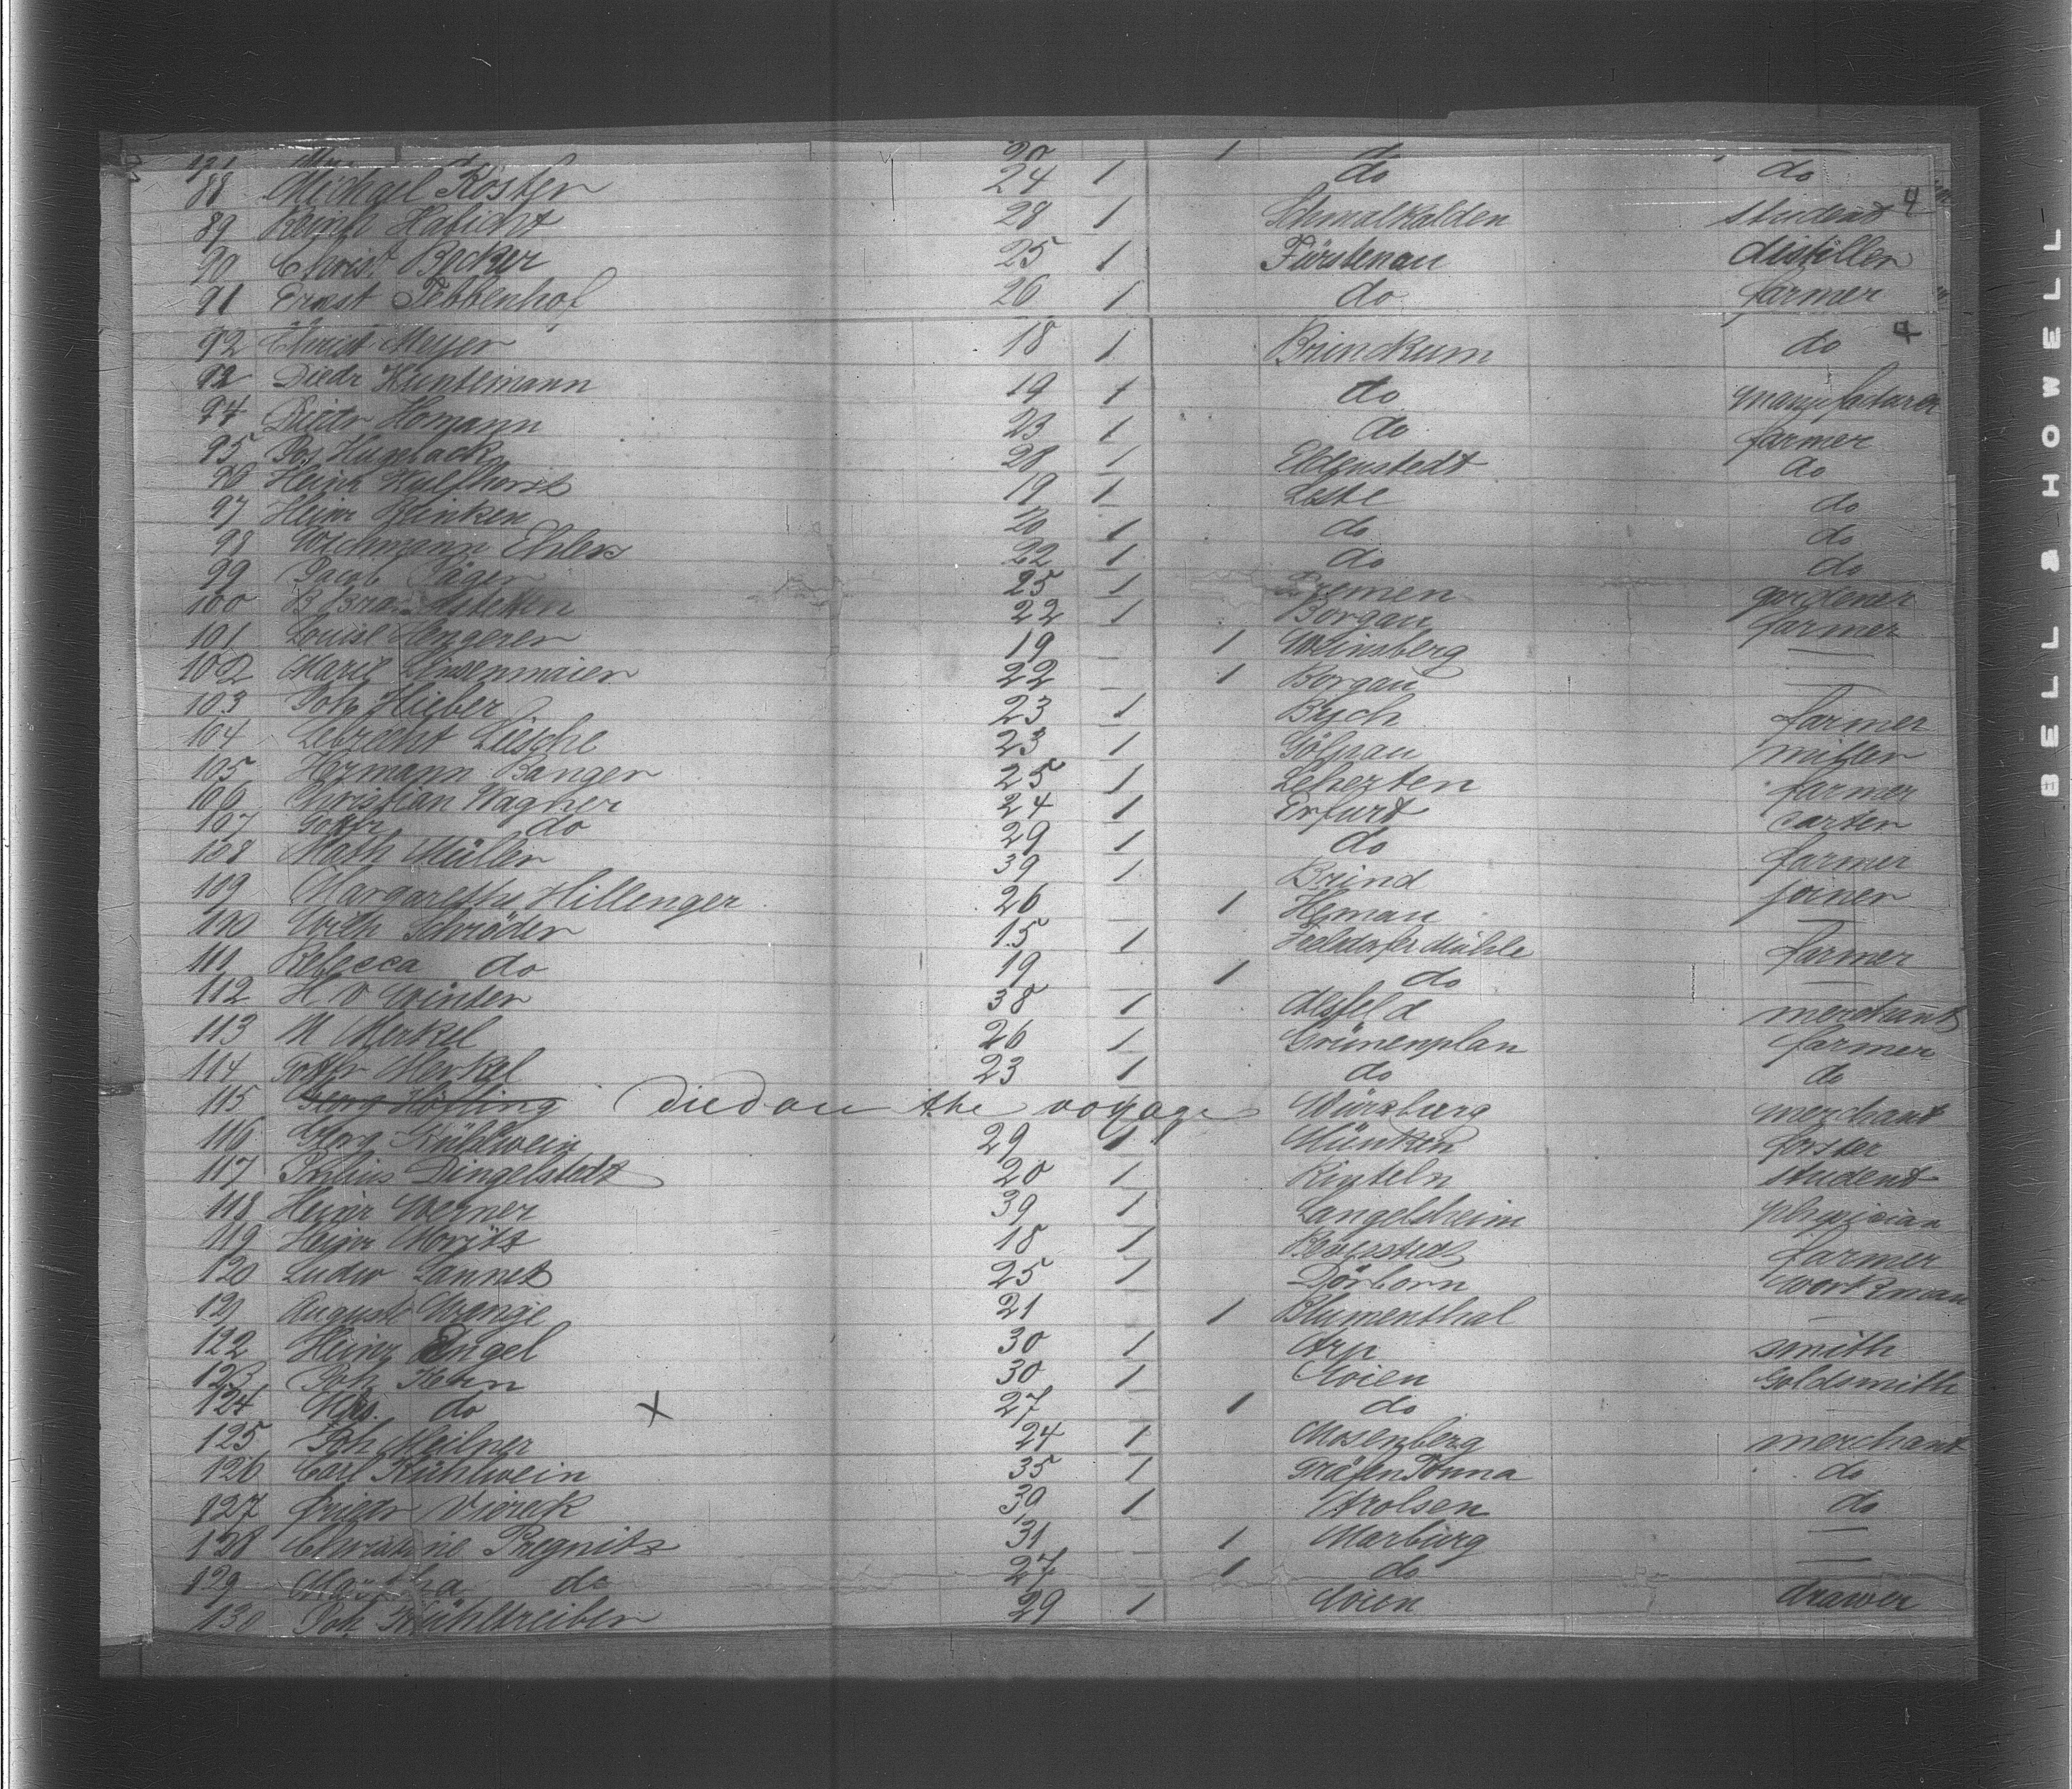 131 Mrs do 20 1 do —
88 Michael Koster 24 1 do do
89 Reinh Habicht 28 1 Schmalkalden student 4
90 Christ Becker 25 1 Fürstenau distiller
91 Ernst Tebbenhof 26 1 do farmer
92 Christ Meyer 18 1 Brinckum do 4
92 Diedr Kuntemann 19 1 do manufacturer
94 Diedr Homann 23 1 do farmer
95 Jos Hugeback 28 1 Eldenstedt do
96 Heinr Wulfhorst 19 1 Leste do
97 Heinr Reinken 20 1 do do
98 Wichmann Ehlers 22 1 do do
99 Jacob Jäger 25 1 Bremen gardener
100 22 1 Borgau farmer
101 Louise Hengerer 19 1 Weinsberg —
102 Marie Linsenmaier 22 1 Borgau —
103 Joh Hieber 23 1 Bych farmer
104 Lebrecht Liesche 23 1 Gölpau miller
105 Hermann Banger 25 1 Lehezten farmer
106 Christian Wagner 24 1 Erfurt carter
107 Gottfr do 29 1 do farmer
108 Math Müller 39 1 Brind joiner
109 Margarethe Hillenger 26 1 Heman —
110 Wilh Schröder 15 1 Mühle farmer
111 Rebecca do 19 1 do —
112 H v Winter 38 1 Alsfeld merchant
113 M Merkel 26 1 Grünenplan farmer
114 Gottfr Merkel 23 1 do do
115 Georg Höfling Died on the voyage Würzburg merchant
116 Georg Kühlwein 29 1 Münken forster
117 Julius Dingelstedt 20 1 Rinteln student
118 Heinr Werner 39 1 Langelsheim physician
119 Heinr Moritz 18 1 Beverstedt farmer
120 Ludw Lannet 25 1 Dörborn workman
121 Auguste Wrange 21 1 Blumenthal —
122 Heinr Engel 30 1 Arp smith
123 Joh Kern 30 1 Wien Goldsmith
124 Mrs. do X 27 1 do —
125 Joh Meilner 24 1 Mosenberg merchant
126 Carl Kühlwein 35 1 Gräfen Tonna do
127 Friedr Viereck 39 1 Arolsen do
128 Christine Pregnitz 31 1 Marburg —
129 Martha do 27 1 do —
130 Joh Kühltreiber 29 1 Wien drawer
BELL & HOWELL